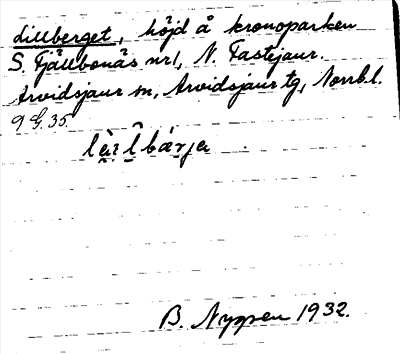 Lillberget, höjd å kronoparken
S. Fjällbonäs nr 1, N. Tastejaur.
Arvidsjaur sn, Arvidsjaur tg, Norrb. l.
9 G. 35.
B. Nyppen 1932.